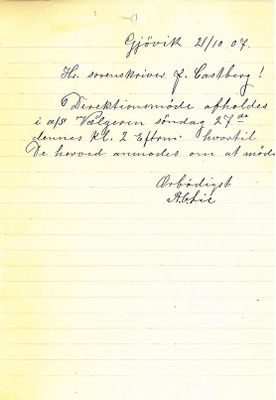 Gjövik 21/10 07.
Hr. sorenskriver J. Castberg!
Direktionsmöde afholdes
i a/s Vælgeren söndag 27de
dennes kl. 2 Eftm. hvortil
De herved anmodes om at möde
Ærbödigst